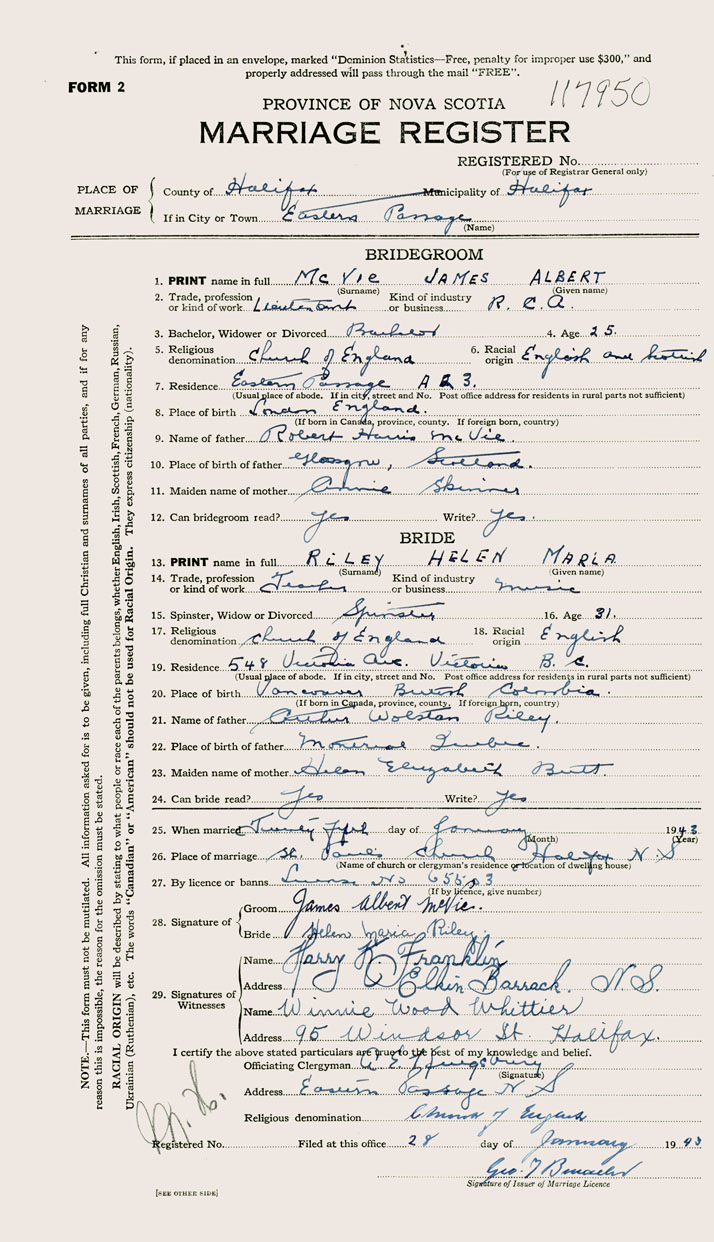 This form, if placed in an envelope, marked "Dominion Statistics—Free, penalty for improper use $300," and
properly addressed will pass through the mail "FREE".
FORM 2
117950
PROVINCE OF NOVA SCOTIA
MARRIAGE REGISTER
REGISTERED No.
(For use of Registrar General only)
PLACE OF MARRIAGE
County of Halifax Municipality of Halifax
If in City or Town Eastern Passage
(Name)
BRIDEGROOM
1. PRINT name in full McVie JAMES ALBERT
(Surname) (Given name)
2. Trade, profession or kind of work Lieutenant Kind of industry or business R. C. A.
3. Bachelor, Widower or Divorced Bachelor 4. Age 25.
5. Religious denomination Church of England 6. Racial origin English and Scottish
7. Residence Eastern Passage
(Usual place of abode. If in city, street and No. Post office address for residents in rural parts not sufficient)
8. Place of birth London England.
(If born in Canada, province, county. If foreign born, country)
9. Name of father Robert Harris McVie
10. Place of birth of father Glasgow, Scotland.
11. Maiden name of mother Annie Skinner
12. Can bridegroom read? yes Write? yes.
BRIDE
13. PRINT name in full RILEY HELEN MARIA
(Surname) (Given name)
14. Trade, profession or kind of work Teacher Kind of industry or business music
15. Spinster, Widow or Divorced Spinster 16. Age 31.
17. Religious denomination Church of England 18. Racial origin English
19. Residence 548 Victoria Ave. Victoria B. C.
(Usual place of abode. If in city, street and No. Post office address for residents in rural parts not sufficient)
20. Place of birth Vancouver British Colombia.
(If born in Canada, province, county. If foreign born, country)
21. Name of father Arthur Wolstan Riley.
22. Place of birth of father Montreal Quebec.
23. Maiden name of mother Helen Elizabeth Butt
24. Can bride read? Yes Write? Yes
25. When married day of January 1943
(Month) (Year)
26. Place of marriage St. Paul's Church Halifax N. S
(Name of church or clergyman's residence or location of dwelling house)
27. By licence or banns License No
(If by licence, give number)
28. Signature of
Groom James Albert McVie.
Bride Helen Maria Riley.
29. Signatures of Witnesses
Name Harry K Franklin
Address Elkin Barrack. N.S.
Name Winnie Wood Whittier
Address 95 Windsor St. Halifax.
I certify the above stated particulars are true to the best of my knowledge and belief.
Officiating Clergyman
(Signature)
Address Eastern Passage N S
Religious denomination Church of England
Registered No. Filed at this office 28 day of January 1943
Geo. T
Signature of Issuer of Marriage Licence
[SEE OTHER SIDE]
NOTE.—This form must not be mutilated. All information asked for is to be given, including full Christian and surnames of all parties, and if for any
reason this is impossible, the reason for the omission must be stated.
RACIAL ORIGIN will be described by stating to what people or race each of the parents belongs, whether English, Irish, Scottish, French, German, Russian,
Ukrainian (Ruthenian), etc. The words "Canadian" or "American" should not be used for Racial Origin. They express citizenship (nationality).